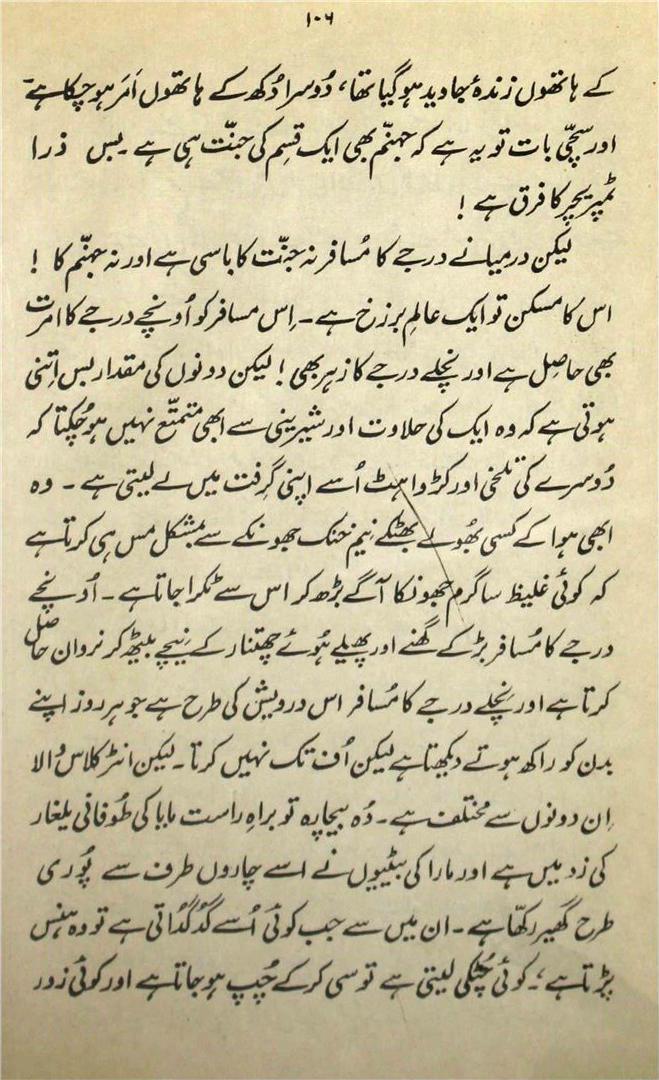 ۱۰۶
کے ہاتھوں زندۂ جاوید ہو گیا تھا، دُوسرا دُکھ کے ہاتھوں اَمَر ہو چکا ہے۔
اور سچّی بات تو یہ ہے کہ جہنّم بھی ایک قسِم کی جنّت ہی ہے۔ بس ذرا
ٹمپریچر کا فرق ہے !
لیکن درمیانے درجے کا مُسافر نہ جنّت کا باسی ہے اور نہ جہنّم کا !
اس کا مسکن تو ایک عالمِ برزخ ہے۔ اِس مسافر کو اُونچے درجے کا امرت
بھی حاصِل ہے اور نچلے درجے کا زہر بھی ! لیکن دونوں کی مقدار بس اِتنی
ہوتی ہے کہ وہ ایک کی حلاوت اور شیرینی سے ابھی متمتّع نہیں ہو چُکتا کہ
دُوسرے کی تلخی اور کڑواہٹ اُسے اپنی گِرفت میں لے لیتی ہے۔ وہ
ابھی ہوا کے کسی بھُولے بھٹکے نیم خنک جھونکے سے بمشکل مس ہی کرتا ہے
کہ کوئی غلیظ سا گرم جھونکا آگے بڑھ کر اس سے ٹکرا جاتا ہے۔ اُونچے
درجے کا مُسافر بڑ کے گھنے اور پھیلے ہُوئے چھتنار کے نیچے بیٹھ کر نروان حاصل
کرتا ہے اور نِچلے درجے کا مُسافر اس درویش کی طرح ہے جو ہر روز اپنے
بدن کو راکھ ہوتے دیکھتا ہے لیکن اُف تک نہیں کرتا۔ لیکن انٹر کلاس والا
اِن دونوں سے مختلف ہے۔ وُہ بیچارہ تو براہِ راست مایا کی طُوفانی یلغار
کی زد میں ہے اور مارا کی بیٹیوں نے اسے چاروں طرف سے پُوری
طرح گھیر رکھّا ہے۔ ان میں سے جب کوئی اُسے گُدگُداتی ہے تو وہ ہنس
پڑتا ہے، کوئی چُٹکی لیتی ہے تو سی کر کے چُپ ہو جاتا ہے اور کوئی زور